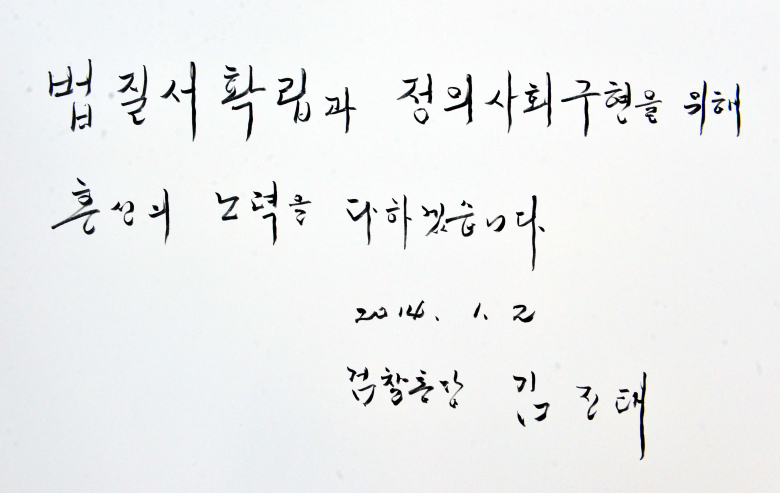 법질서확립과 정의사회구현을 위해
혼신의 노력을 다하겠습니다.
2014. 1. 2
검찰총장 김진태